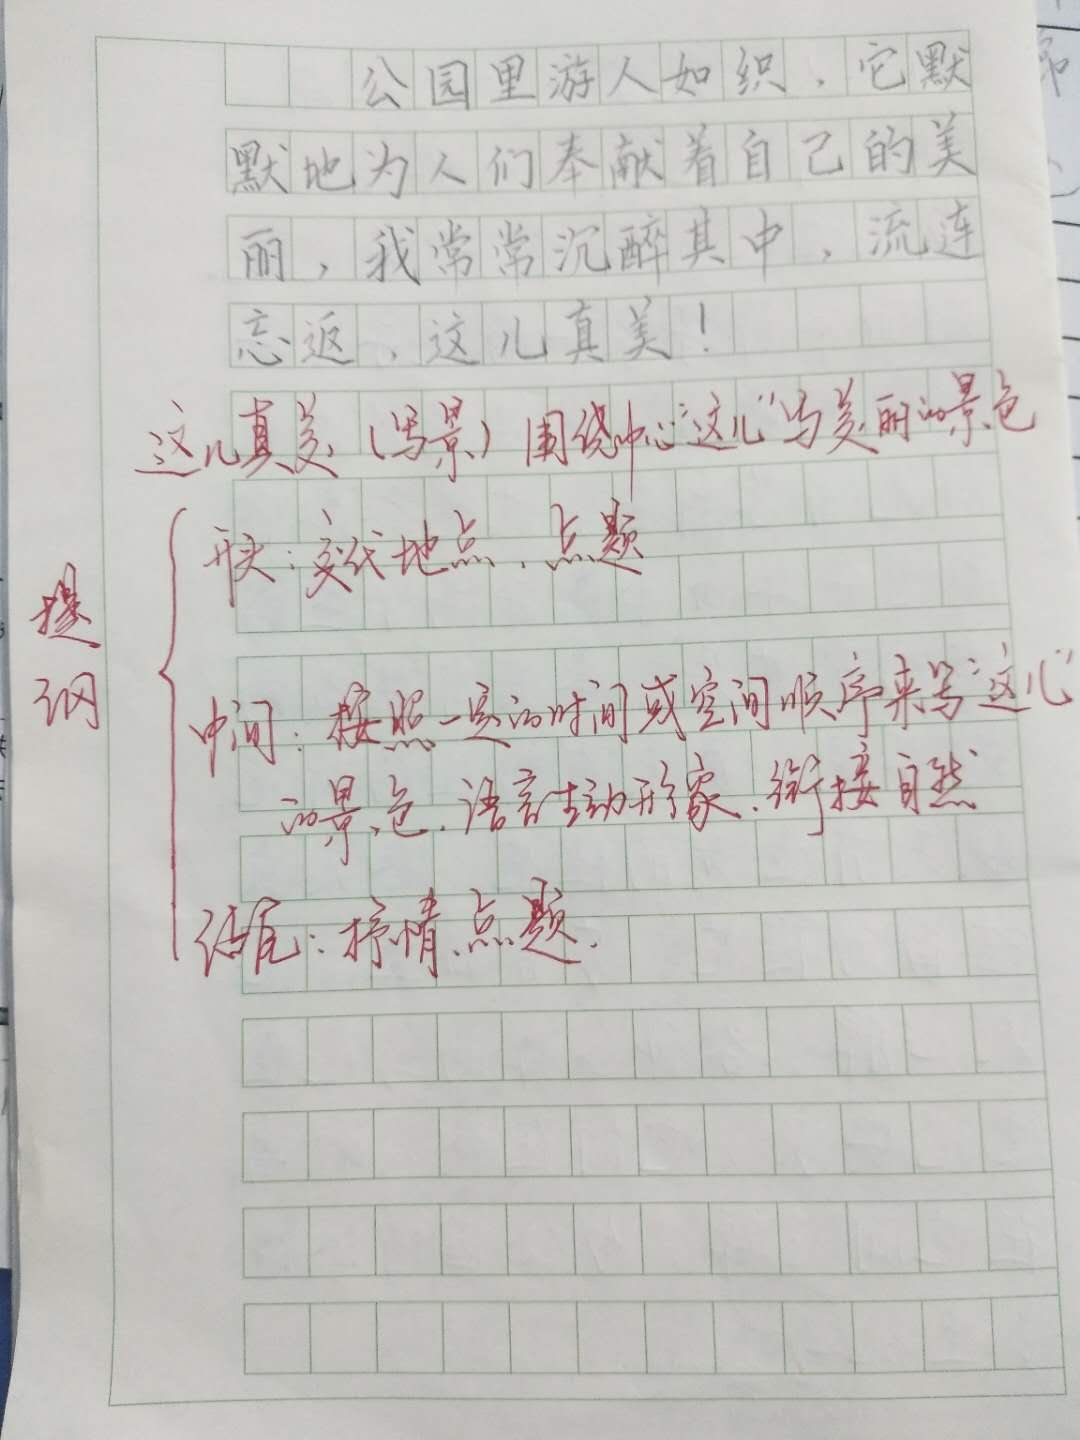 公园里游人如织,它默
默地为人们奉献着自己的美
丽,我常常沉醉其中,流连
忘返,这儿真美!
这儿真美(写景)围绕中心"这儿"写美丽的景色
提纲
开头:交代地点、点题
中间:按照一定的时间或空间顺序来写"这儿"
的景色.语言生动形象、衔接自然
结尾:抒情、点题.